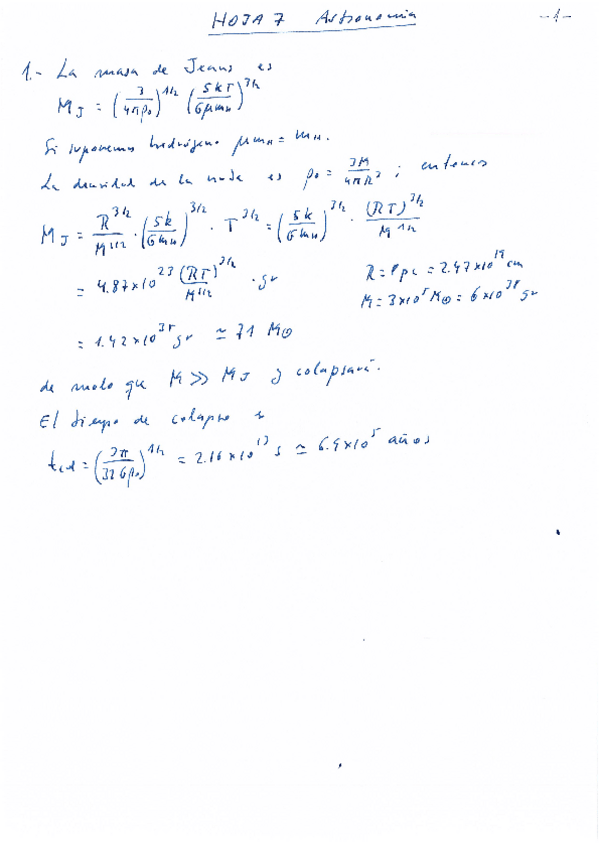 HOJA 7 Astronomía -1-
1.- La masa de Jeans es
M_J = (3/4πρ₀)^1/2 (5kT/Gμm_H)^3/2
Si suponemos hidrógeno μm_H = m_H.
La densidad de la nube es ρ₀ = 3M/4πR³ ; entonces
M_J = R^3/2/M^1/2 · (5k/Gm_H)^3/2 · T^3/2 = (5k/Gm_H)^3/2 · (RT)^3/2/M^1/2
= 4.87×10^23 (RT)^3/2/M^1/2 · gr
R = 8 pc = 2.47×10^19 cm
M = 3×10^5 M⊙ = 6×10^38 gr
= 1.42×10^35 gr ≃ 71 M⊙
de modo que M ≫ M_J y colapsará.
El tiempo de colapso es
= (3π/32Gρ₀)^1/2 = 2.16×10^13 s ≃ 6.9×10^5 años